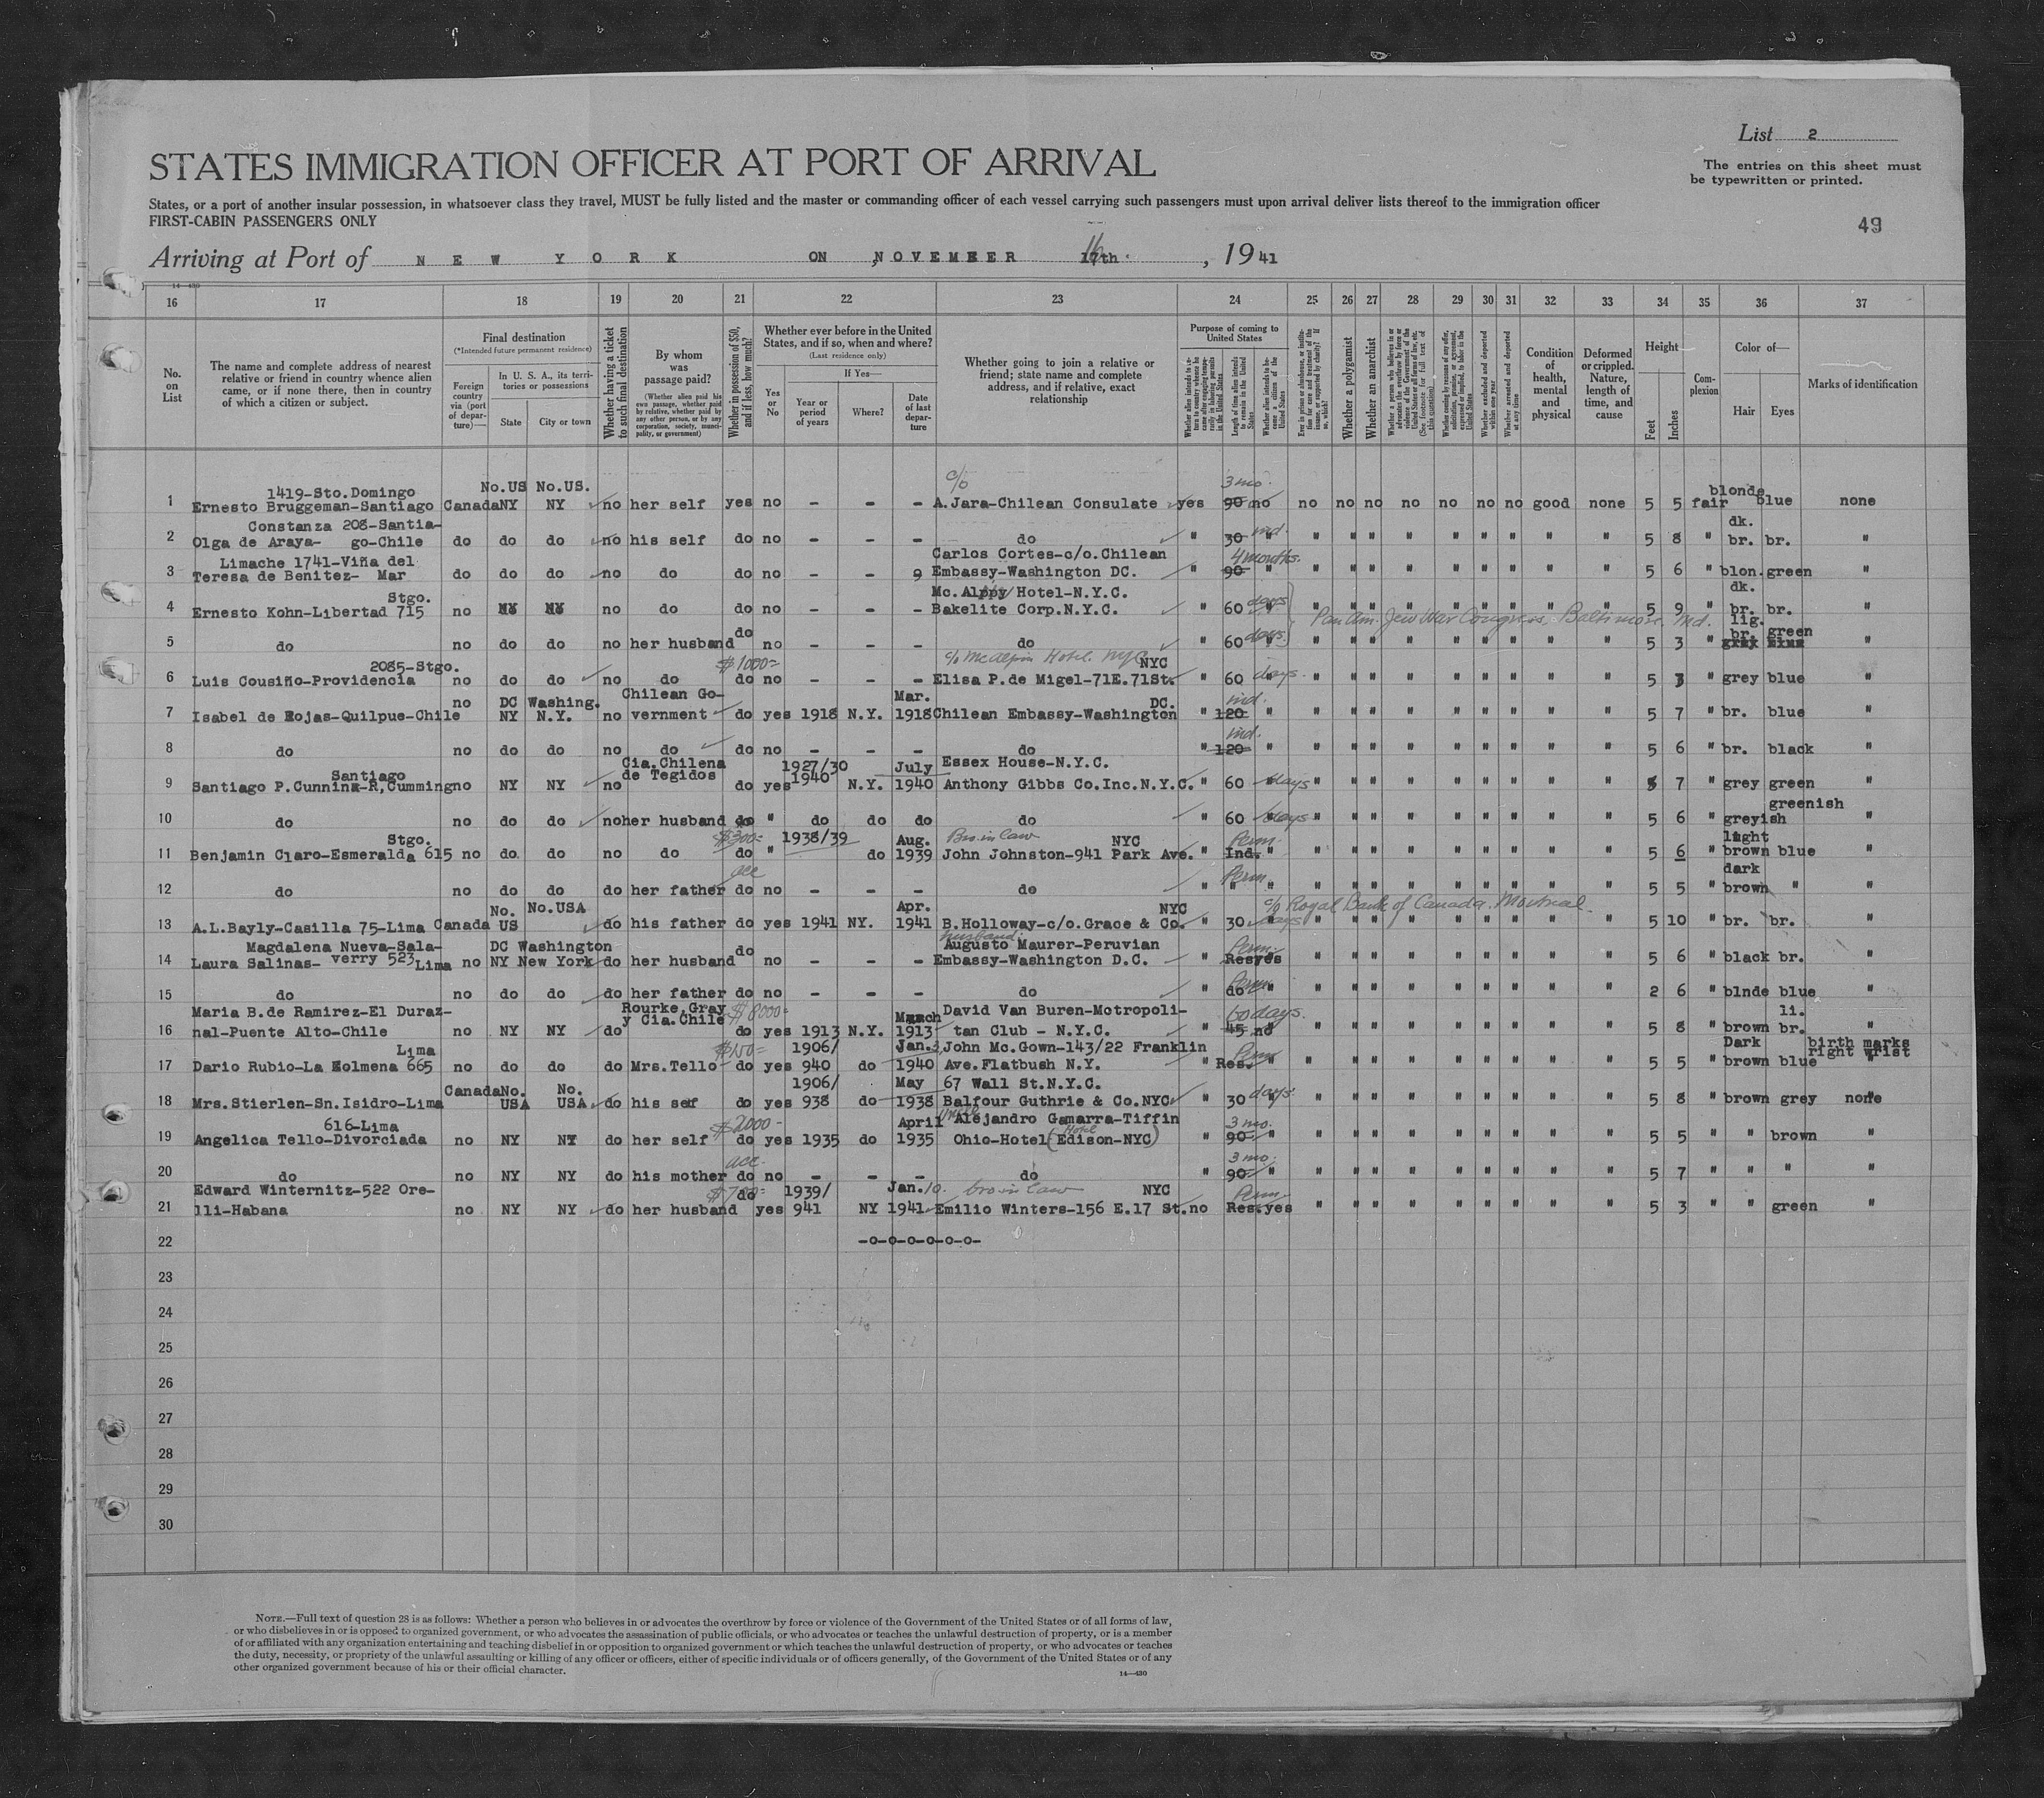 List 2
STATES IMMIGRATION OFFICER AT PORT OF ARRIVAL
The entries on this sheet must
be typewritten or printed.
States, or a port of another insular possession, in whatsoever class they travel, MUST be fully listed and the master or commanding officer of each vessel carrying such passengers must upon arrival deliver lists thereof to the immigration officer
FIRST-CABIN PASSENGERS ONLY
49
Arriving at Port of NEW YORK ON, NOVEMBER 16 17th. , 19 41
14-430
16 17 18 19 20 21 22 23 24 25 26 27 28 29 30 31 32 33 34 35 36 37
No. on List
The name and complete address of nearest relative or friend in country whence alien came, or if none there, then in country of which a citizen or subject.
Final destination
(*Intended future permanent residence)
Foreign country via (port of departure)—
In U. S. A., its territories or possessions
State
City or town
Whether having a ticket to such final destination
By whom was passage paid?
(Whether alien paid his own passage, whether paid by relative, whether paid by any other person, or by any corporation, society, municipality, or government)
Whether in possession of $50, and if less, how much?
Whether ever before in the United States, and if so, when and where?
(Last residence only)
Yes or No
If Yes—
Year or period of years
Where?
Date of last departure
Whether going to join a relative or friend; state name and complete address, and if relative, exact relationship
Purpose of coming to United States
Length of time alien intends to remain in the United States
Whether alien intends to become a citizen of the United States
Whether a polygamist
Whether an anarchist
Whether excluded and deported within one year
Whether arrested and deported at any time
Condition of health, mental and physical
Deformed or crippled. Nature, length of time, and cause
Height—
Feet
Inches
Complexion
Color of—
Hair
Eyes
Marks of identification
1419-Sto.Domingo No.US No.US. c/o 3 mo. blonde
1 Ernesto Bruggeman-Santiago Canada NY NY no her self yes no - - - A.Jara-Chilean Consulate yes 90 no no no no no no no no good none 5 5 fair blue none
Constanza 208-Santia- ind. dk.
2 Olga de Araya- go-Chile do do do no his self do no - - - do " 30 " " " " " " " " " " 5 8 " br. br. "
Limache 1741-Viña del Carlos Cortes-c/o.Chilean 4 months.
3 Teresa de Benitez- Mar do do do no do do no - - 9 Embassy-Washington DC. " 90 " " " " " " " " " " 5 6 " blon. green "
Stgo. Mc. Alppy Hotel-N.Y.C. dk.
4 Ernesto Kohn-Libertad 715 no NY NY no do do no - - - Bakelite Corp.N.Y.C. " 60 days " " " " " " " " " " 5 9 " br. br. "
Pan Am. Jew War Congress. Baltimore. Md. lig.
5 do no do do no her husband do no - - - do " 60 days " " " " " " " " " " 5 3 " br. green "
2085-Stgo. $1000- c/o McAlpin Hotel. NYC NYC
6 Luis Cousiño-Providencia no do do no do do no - - - Elisa P.de Migel-71E.71St. " 60 days. " " " " " " " " " 5 3 " grey blue "
no DC Washing. Chilean Go- Mar. DC. ind.
7 Isabel de Rojas-Quilpue-Chile NY N.Y. no vernment do yes 1918 N.Y. 1918 Chilean Embassy-Washington " 120 " " " " " " " " " " 5 7 " br. blue "
ind.
8 do no do do no do do no - - - do " 120 " " " " " " " " " " 5 6 " br. black "
Santiago Cia.Chilena 1927/30 July Essex House-N.Y.C.
9 Santiago P.Cunnina-R,Cumming no NY NY no de Tegidos do yes 1940 N.Y. 1940 Anthony Gibbs Co.Inc.N.Y.C. " 60 days " " " " " " " " " 5 7 " grey green "
greenish
10 do no do do no her husband do " do do do do " 60 days " " " " " " " " " 5 6 " greyish "
Stgo. $300- 1938/39 Aug. Bro. in law NYC Perm. light
11 Benjamin Claro-Esmeralda 615 no do do no do do " do 1939 John Johnston-941 Park Ave. " Ind. " " " " " " " " " " 5 6 " brown blue "
acc Perm. dark
12 do no do do do her father do no - - - do " " " " " " " " " " " " 5 5 " brown " "
No. No.USA Apr. NYC c/o Royal Bank of Canada. Montreal.
13 A.L.Bayly-Casilla 75-Lima Canada US do his father do yes 1941 NY. 1941 B.Holloway-c/o.Grace & Co. " 30 days " " " " " " " " " 5 10 " br. br. "
Magdalena Nueva-Sala- DC Washington husband: Augusto Maurer-Peruvian Perm.
14 Laura Salinas- verry 523 Lima no NY New York do her husband do no - - - Embassy-Washington D.C. " Res yes " " " " " " " " " 5 6 " black br. "
Perm
15 do no do do do her father do no - - - do " do " " " " " " " " " " 2 6 " blnde blue "
Maria B.de Ramirez-El Duraz- Rourke,Gray $8000- March David Van Buren-Motropoli- 60 days. li.
16 nal-Puente Alto-Chile no NY NY do y Cia.Chile do yes 1913 N.Y. 1913 tan Club - N.Y.C. " 45 no " " " " " " " " " 5 8 " brown br. "
Lima 1906/ Jan. John Mc.Gown-143/22 Franklin Perm Dark birth marks right wrist
17 Dario Rubio-La Kolmena 665 no do do do Mrs.Tello do yes 940 do 1940 Ave.Flatbush N.Y. " Res. " " " " " " " " " " 5 5 " brown blue "
Canada No. No. 1906/ May 67 Wall St.N.Y.C.
18 Mrs.Stierlen-Sn.Isidro-Lima USA USA do his self do yes 938 do 1938 Balfour Guthrie & Co.NYC " 30 days. " " " " " " " " " 5 8 " brown grey none
616-Lima $2000- April Uncle Alejandro Gamarra-Tiffin 3 mo.
19 Angelica Tello-Divorciada no NY NY do her self do yes 1935 do 1935 Ohio-Hotel (Hotel Edison-NYC) " 90 " " " " " " " " " " 5 5 " " brown "
acc. 3 mo.
20 do no NY NY do his mother do no - - - do " 90 " " " " " " " " " " 5 7 " " " "
Edward Winternitz-522 Ore- do 1939/ Jan.10. bro in law NYC Perm.
21 lli-Habana no NY NY do her husband yes 941 NY 1941 Emilio Winters-156 E.17 St. no Res. yes " " " " " " " " " 5 3 " " green "
22 -o-o-o-o-o-o-
23
24
25
26
27
28
29
30
NOTE.—Full text of question 28 is as follows: Whether a person who believes in or advocates the overthrow by force or violence of the Government of the United States or of all forms of law,
or who disbelieves in or is opposed to organized government, or who advocates the assassination of public officials, or who advocates or teaches the unlawful destruction of property, or is a member
of or affiliated with any organization entertaining and teaching disbelief in or opposition to organized government or which teaches the unlawful destruction of property, or who advocates or teaches
the duty, necessity, or propriety of the unlawful assaulting or killing of any officer or officers, either of specific individuals or of officers generally, of the Government of the United States or of any
other organized government because of his or their official character.
14—430